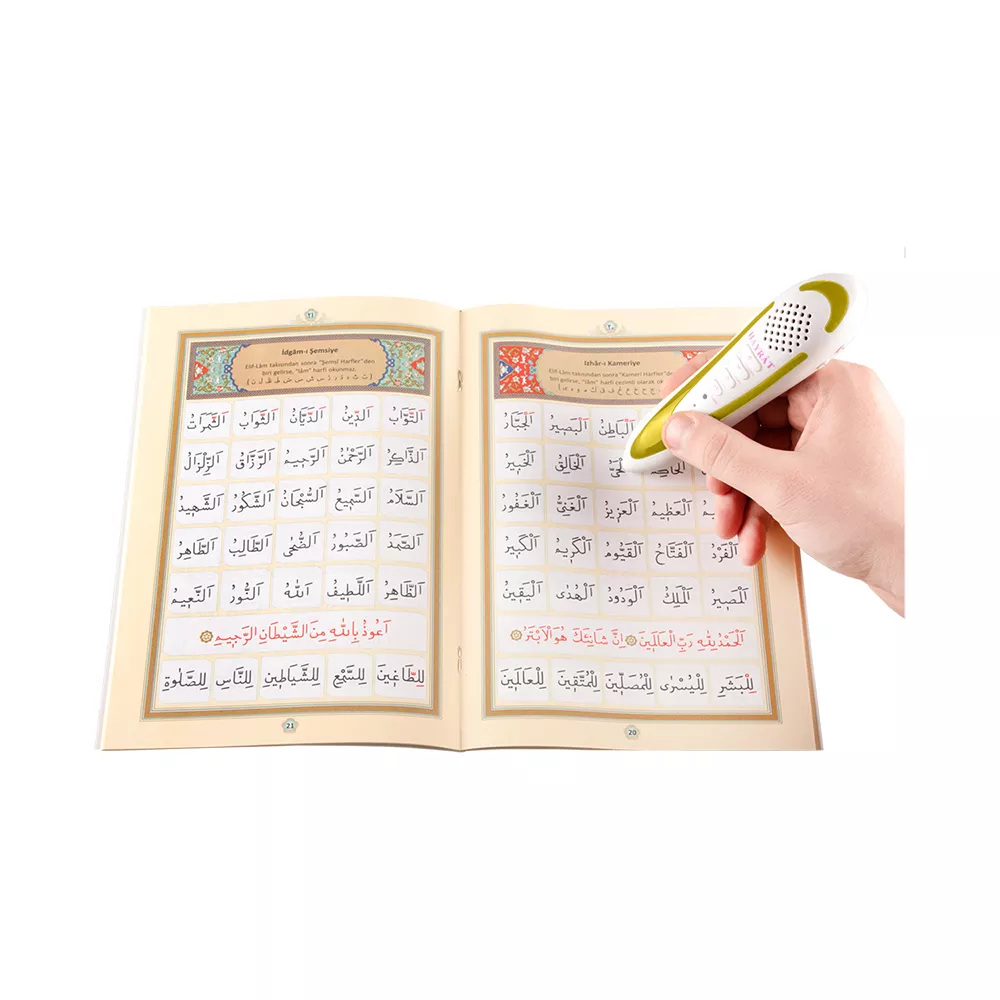 ٢٠
Izhâr-ı Kameriye
Elif-Lâm takısından sonra "Kameri Harfler"
biri gelirse, "lâm" harfi cezimli olarak
اَلْبَاطِنُ اَلْبَصِيرُ اَلْجَبَّارُ
اَلْخَالِقُ اَلْخَبِيرُ
اَلْعَظِيمُ اَلْعَزِيزُ اَلْغَنِيُّ اَلْغَفُورُ
اَلْفَرْدُ اَلْفَتَّاحُ اَلْقَيُّومُ اَلْكَرِيمُ اَلْكَبِيرُ
اَلْمَصِيرُ اَلْمَلِكُ اَلْوَدُودُ اَلْهُدٰى اَلْيَقِينُ
اَلْحَمْدُ لِلّٰهِ رَبِّ الْعَالَمِينَ اِنَّ شَانِئَكَ هُوَ الْاَبْتَرُ
لِلْبَشَرِ لِلْيُسْرٰى لِلْمُصَلِّينَ لِلْمُتَّقِينَ لِلْعَالَمِينَ
20
٢١
İdgâm-ı Şemsiye
Elif-Lâm takısından sonra "Şemsî Harfler"den
biri gelirse, "lâm" harfi okunmaz.
( ت ث د ذ ر ز س ش ص ض ط ظ ل ن )
اَلتَّوَّابُ اَلدِّينُ اَلدَّيَّانُ اَلثَّوَابُ اَلثَّمَرَاتُ
اَلذَّاكِرُ اَلرَّحْمٰنُ اَلرَّحِيمُ اَلرَّزَّاقُ اَلزِّلْزَالُ
اَلسَّلَامُ اَلسَّمِيعُ اَلسُّبْحَانُ اَلشَّكُورُ اَلشَّهِيدُ
اَلصَّمَدُ اَلصَّبُورُ اَلضُّحٰى اَلطَّالِبُ اَلطَّاهِرُ
اَلظَّاهِرُ اَللَّطِيفُ اَللّٰهُ اَلنُّورُ اَلنَّعِيمُ
اَعُوذُ بِاللّٰهِ مِنَ الشَّيْطَانِ الرَّجِيمِ
لِلطَّاغِينَ لِلسَّمْعِ لِلشَّيَاطِينِ لِلنَّاسِ لِلصَّلٰوةِ
21
HAYRAT